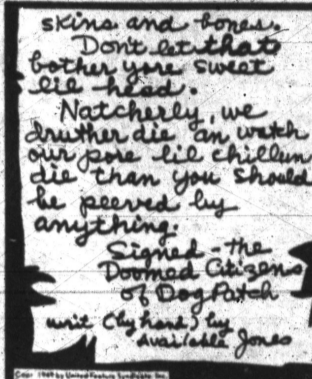 skins and bones.
Don't let that
bother yore sweet
lil head.
Natcherly, we
druther die an watch
our pore lil chillun
die than you should
be peeved by
anything.
Signed - the
Doomed Citizens
of DogPatch
writ (by hand) by
Available Jones
Copr. 1949 by United Feature Syndicate, Inc.